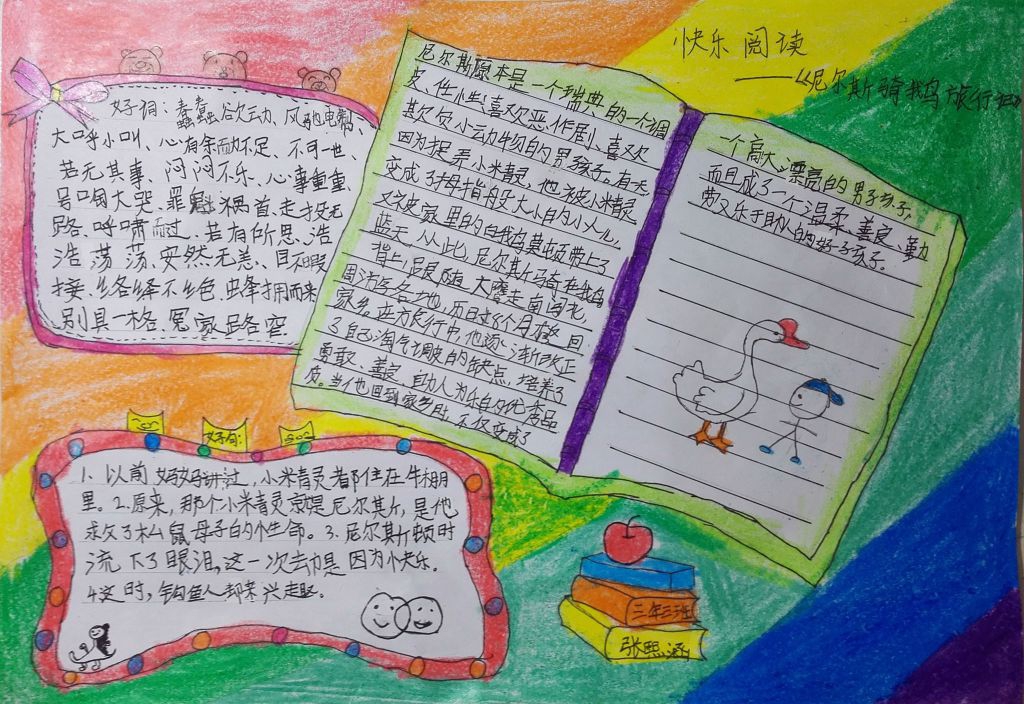 快乐阅读
——《尼尔斯骑鹅旅行记》
好词：蠢蠢欲动、风驰电掣、
大呼小叫、心有余而力不足、不可一世、
若无其事、闷闷不乐、心事重重、
号啕大哭、罪魁祸首、走投无
路、呼啸而过、若有所思、浩
浩荡荡、安然无恙、目不暇
接、络绎不绝、蜂拥而来
别具一格、冤家路窄
尼尔斯原本是一个瑞典的一个调
皮、性喜欢恶作剧、喜欢
欺负小动物的男孩子。有天
因为捉弄小米精灵，他被小米精灵
变成了拇指般大小的小人儿，
又被家里的白鹅莫顿带上了
蓝天，从此，尼尔斯骑在鹅
背上，跟随大雁走南闯北，
周游各地，历时8个月才回
家乡。在旅行中，他逐渐改正
了自己淘气调皮的缺点，培养了
勇敢、善良、助人为乐的优秀品
质。当他回到家乡时，不仅变成了
一个高大、漂亮的男孩子，
而且成了一个温柔、善良、勤
劳又乐于助人的好孩子。
好句：
1. 以前妈妈讲过，小米精灵都住在牛棚
里。2.原来，那个小米精灵就是尼尔斯，是他
救了松鼠母子的性命。3.尼尔斯顿时
流下了眼泪，这一次却是因为快乐。
4这时，钓鱼人却来兴趣。
三年三班
张熙涵